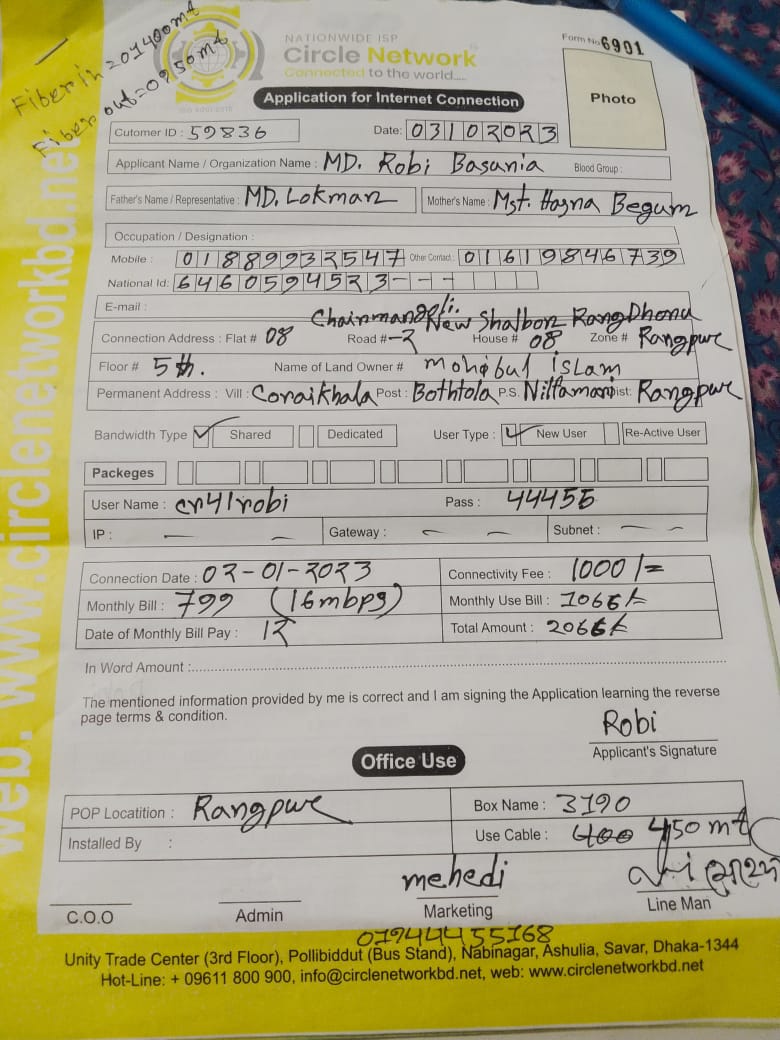 Fiber in = 201400mt
Fiber out = 0950mt
NATIONWIDE ISP
Circle Network
Connected to the world.....
Form No 6901
Application for Internet Connection
Photo
Cutomer ID : 59836 Date: 03102023
Applicant Name / Organization Name : MD. Robi Basunia Blood Group :
Father's Name / Representative : MD. Lokman Mother's Name : Mst. Hasna Begum
Occupation / Designation :
Mobile : 01889932547 Other Contact : 01619846739
National Id: 6460594523---
E-mail :
Chairman goli.
New Shalbon RangDhonu
Connection Address : Flat # 08 Road # -2 House # 08 Zone # Rangpur
Floor # 5th. Name of Land Owner # mohibul islam
Permanent Address : Vill : Coraikhala Post : Bothtola P.S. Nilfamari Dist: Rangpur
Bandwidth Type ✓ Shared Dedicated User Type : ✓ New User Re-Active User
Packeges
User Name : cn41robi Pass : 44455
IP : — - Gateway : — - Subnet : — -
Connection Date : 02-01-2023 Connectivity Fee : 1000/=
Monthly Bill : 799 (16mbps) Monthly Use Bill : 1066/-
Date of Monthly Bill Pay : 12 Total Amount : 2066/-
In Word Amount :
The mentioned information provided by me is correct and I am signing the Application learning the reverse
page terms & condition.
Robi
Applicant's Signature
Office Use
POP Locatition : Rangpur Box Name : 3190
Installed By : Use Cable : 400 450 mt
mehedi
C.O.O Admin Marketing Line Man
01944455168
Unity Trade Center (3rd Floor), Pollibiddut (Bus Stand), Nabinagar, Ashulia, Savar, Dhaka-1344
Hot-Line: + 09611 800 900, info@circlenetworkbd.net, web: www.circlenetworkbd.net
web: www.circlenetworkbd.net